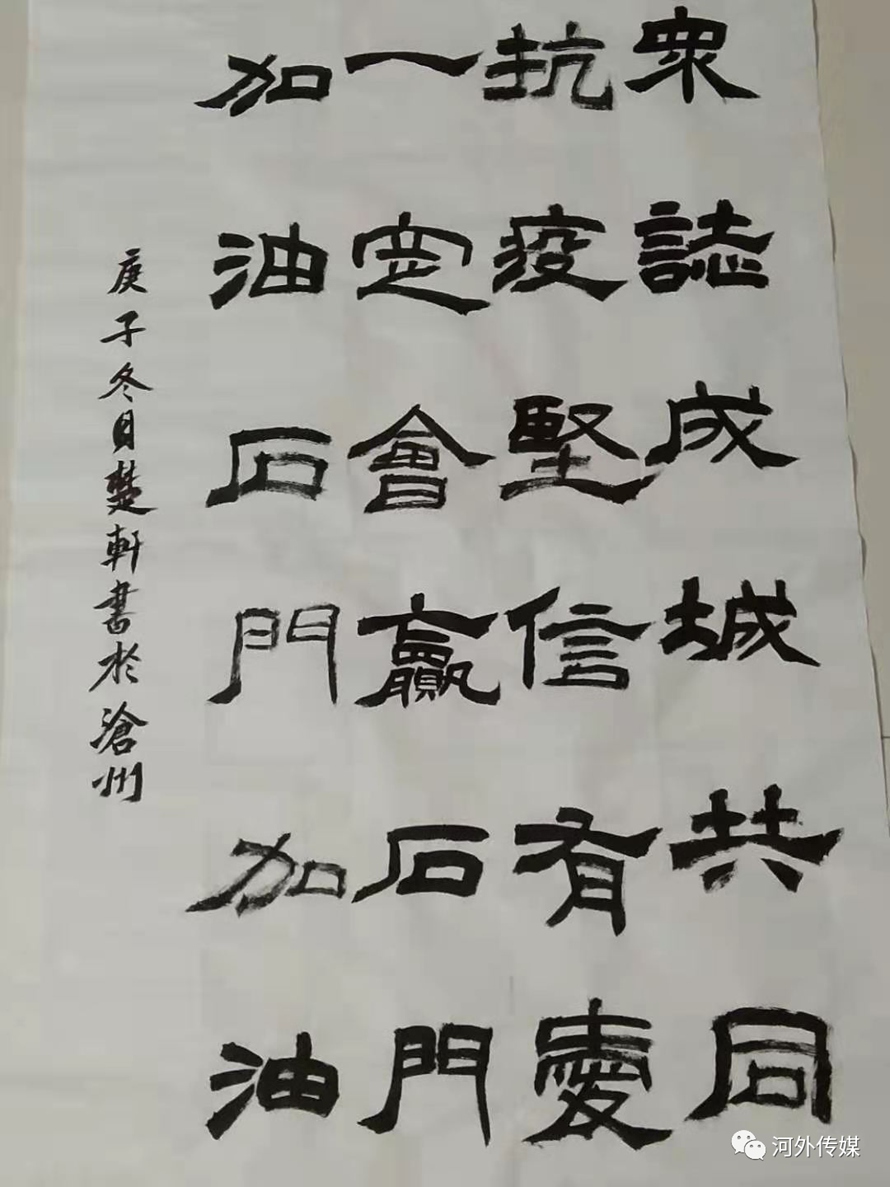 衆誌成城共同
抗疫堅信有愛
一定會贏石門
加油石門加油
庚子冬月楚軒書於滄州
河外传媒